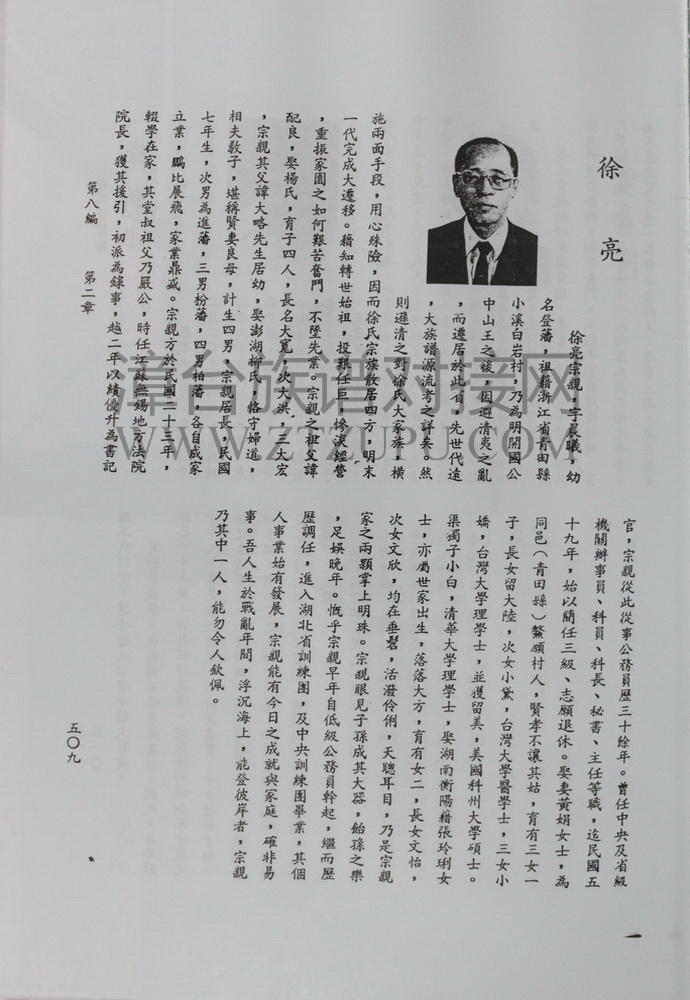 徐亮
徐亮宗親，字晨曦，幼
名登藩，祖籍浙江省青田縣
小溪白岩村，乃為明開國公
中山王之後，因避清夷之亂
，而遷居於此省，先世代遠
，大族譜源流考之詳矣。然
則遜清之對徐氏大家族，橫
施兩面手段，用心殊險，因而徐氏宗族散居四方，明末
一代完成大遷移。藉知轉世始祖，投艱任巨，慘淡經營
，重振家園之如何艱苦奮鬥，不墜先業。宗親之祖父諱
配良，娶楊氏，育子四人，長名大寬，次大洪，三大宏
，宗親其父諱大略先生居幼，娶澎湖柳氏，恪守婦道，
相夫敎子，堪稱賢妻良母，計生四男，宗親居長，民國
七年生，次男為進藩，三男扮藩，四男柏藩，各自成家
立業，鵬比展飛，家業鼎盛。宗親方於民國二十三年，
輟學在家，其堂叔祖父乃嚴公，時任江蘇無錫地方法院
院長，獲其援引，初派為錄事，越二年以績優升為書記
官，宗親從此從事公務員歷三十餘年。曾任中央及省級
機關辦事員、科員、科長、秘書、主任等職，迄民國五
十九年，始以簡任三級、志願退休。娶妻黃娟女士，為
同邑（青田縣）鰲頭村人，賢孝不讓其姑，育有三女一
子，長女留大陸，次女小黛，台灣大學醫學士，三女小
嬌，台灣大學理學士，並獲留美，美國科州大學碩士。
渠獨子小白，清華大學理學士，娶湖南衡陽籍張玲琍女
士，亦屬世家出生，落落大方，育有女二，長女文怡，
次女文欣，均在垂髫，活潑伶俐，天聰耳目，乃是宗親
家之兩顆掌上明珠。宗親眼見子孫成其大器，飴孫之樂
，足娛晚年。慨乎宗親早年自低級公務員幹起，繼而歷
歷調任，進入湖北省訓練團，及中央訓練團畢業，其個
人事業始有發展，宗親能有今日之成就與家庭，確非易
事。吾人生於戰亂年間，浮沉海上，能登彼岸者，宗親
乃其中一人，能勿令人欽佩。
第八編　第二章
五〇九
漳台族谱对接网
WWW.ZTZUPU.COM